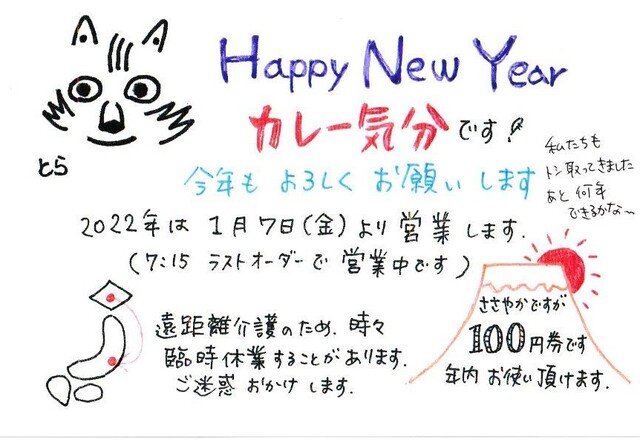 Happy New Year
カレー気分です!
とら
今年も よろしく お願いします
私たちも
トシ取ってきました
あと 何年
できるかな〜
2022年は 1月7日(金)より 営業します.
(7:15 ラストオーダーで 営業中です)
遠距離介護のため、時々
臨時休業することがあります.
ご迷惑 おかけします.
ささやかですが
100円券です
年内 お使い頂けます.